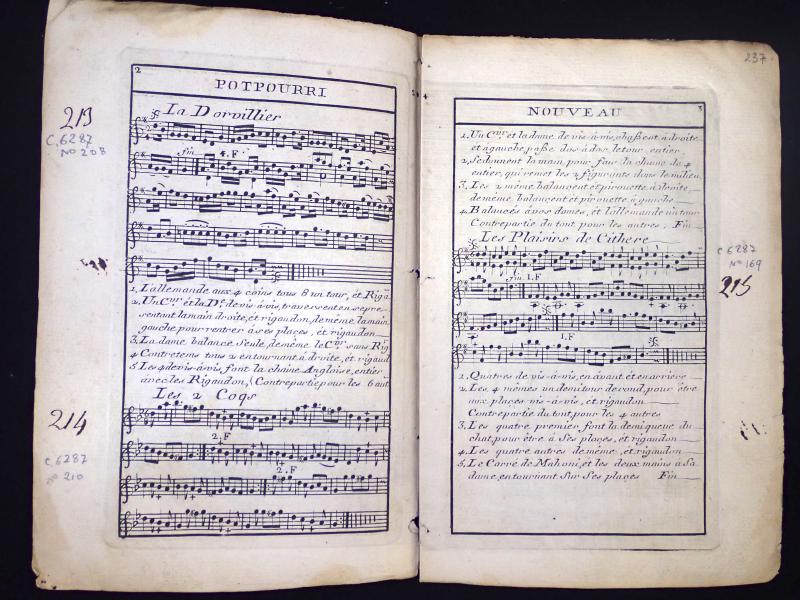 2
POTPOURRI
213
C.6287
No 208
La Dorvillier
fin 4.F
1. L'allemande aux 4 coins tous 8 un tour, et Rig.
2. Un C.er et la D.e de vis-à-vis, traversent en se pre-
sentant la main droite, et rigaudon, de même, la main
gauche pour rentrer à ses places, et rigaudon
3. La dame balance seule, de même le C.er sans Rig
4 Contretems tous 2 en tournant à droite, et rigaud
5 Les 4 de vis-à-vis, font la chaine Angloise, entier
avec les Rigaudon, (Contrepartie pour les 6 aut
Les 2 Coqs
214
C.6287
no 210
2.F
2.F
237
3
NOUVEAU
1. Un C.er et la dame de vis-à-vis, chaßent à droite
et à gauche, paße dos à dos, le tour, entier,
2. Se donnent la main pour fair la chaine de 4
entier, qui remet les 2 figurants dans le milieu
3. Les 2 même balancent et pirouette à droite
de même balancent et pirouette à gauche
4. Balancés à vos dames, et l'allemande un tour
Contrepartie du tout pour les autres. Fin
Les Plaisirs de Cithere
C 6287
No 169
215
fin 1.F
1.F
1. Quatres de vis-à-vis, en avant et en arriere
2. Les 4 mêmes un demi tour de rond, pour être
aux places vis-à-vis, et rigaudon
Contrepartie du tout pour les 4 autres
3. Les quatre premier, font la demi queue du
chat, pour être à Ses places, et rigaudon
4. Les quatre autres de même, et rigaudon
5. Le Carré de Mahoni, et les deux mains a Sa
dame, en tournant Sur Ses places Fin